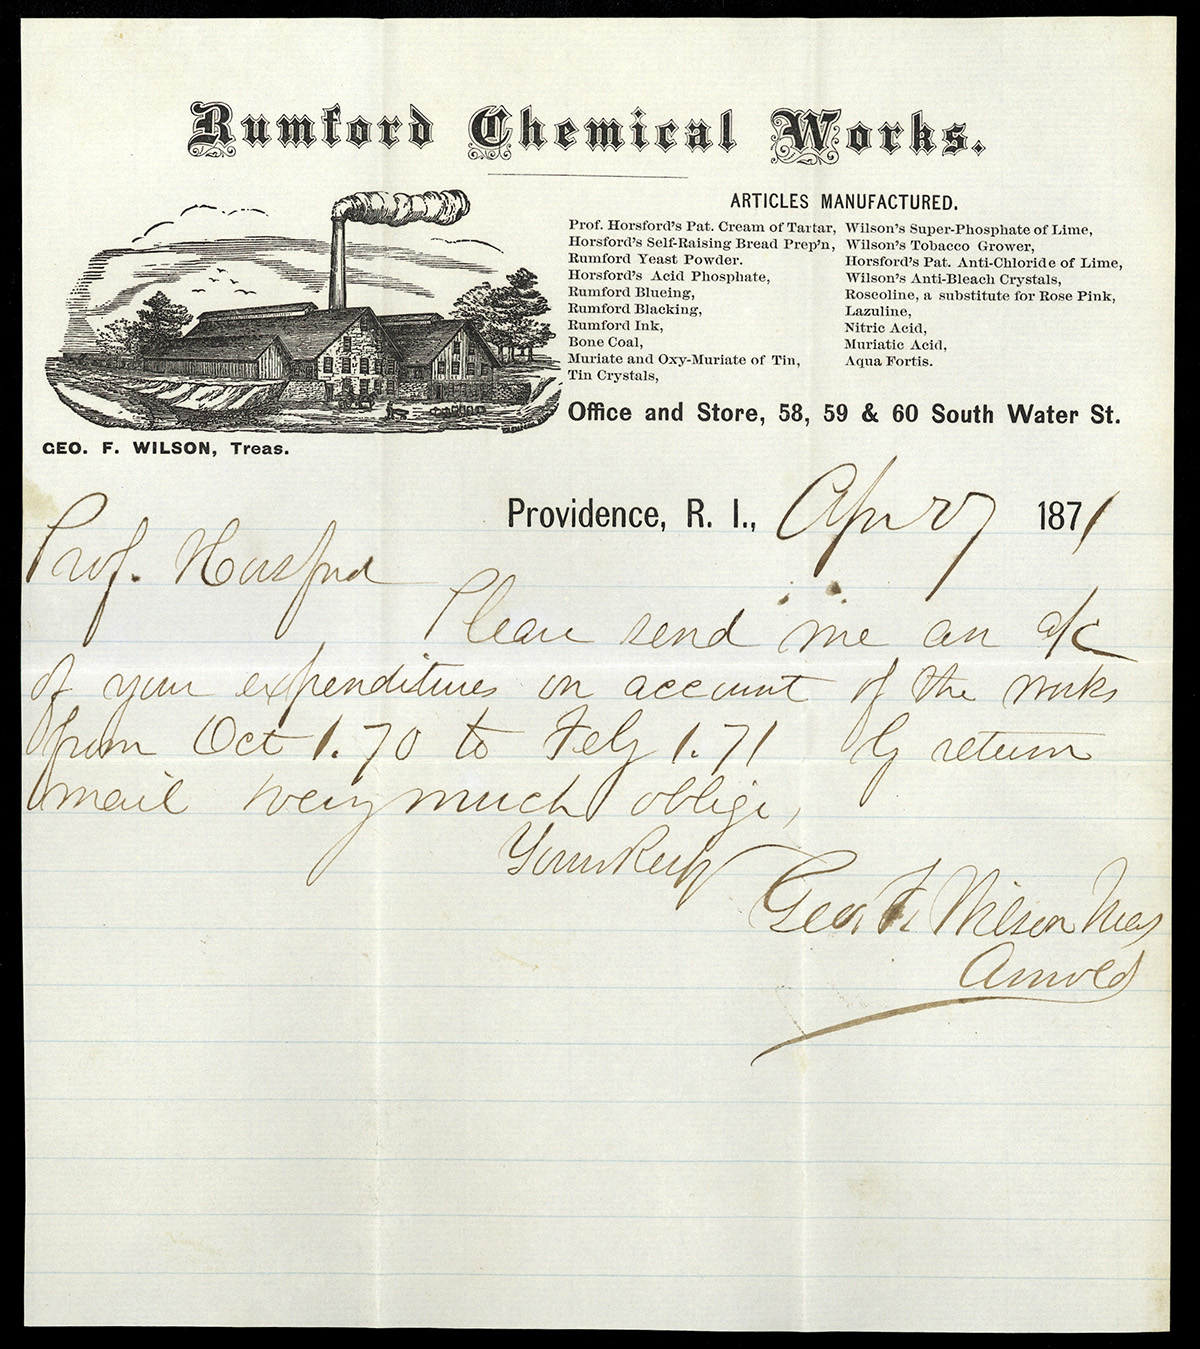 Rumford Chemical Works.
ARTICLES MANUFACTURED.
Prof. Horsford's Pat. Cream of Tartar,
Horsford's Self-Raising Bread Prep'n,
Rumford Yeast Powder.
Horsford's Acid Phosphate,
Rumford Blueing,
Rumford Blacking,
Rumford Ink,
Bone Coal,
Muriate and Oxy-Muriate of Tin,
Tin Crystals,
Wilson's Super-Phosphate of Lime,
Wilson's Tobacco Grower,
Horsford's Pat. Anti-Chloride of Lime,
Wilson's Anti-Bleach Crystals,
Roseoline, a substitute for Rose Pink,
Lazuline,
Nitric Acid,
Muriatic Acid,
Aqua Fortis.
Office and Store, 58, 59 & 60 South Water St.
GEO. F. WILSON, Treas.
Providence, R. I., Apr 27 1871
Prof. Horsford
Please send me an a/c
of your expenditures on account of the works
from Oct 1. 70 to Feby 1. 71 by return
mail very much oblige,
Yours Resp
Geo. F. Wilson Treas
Arnold